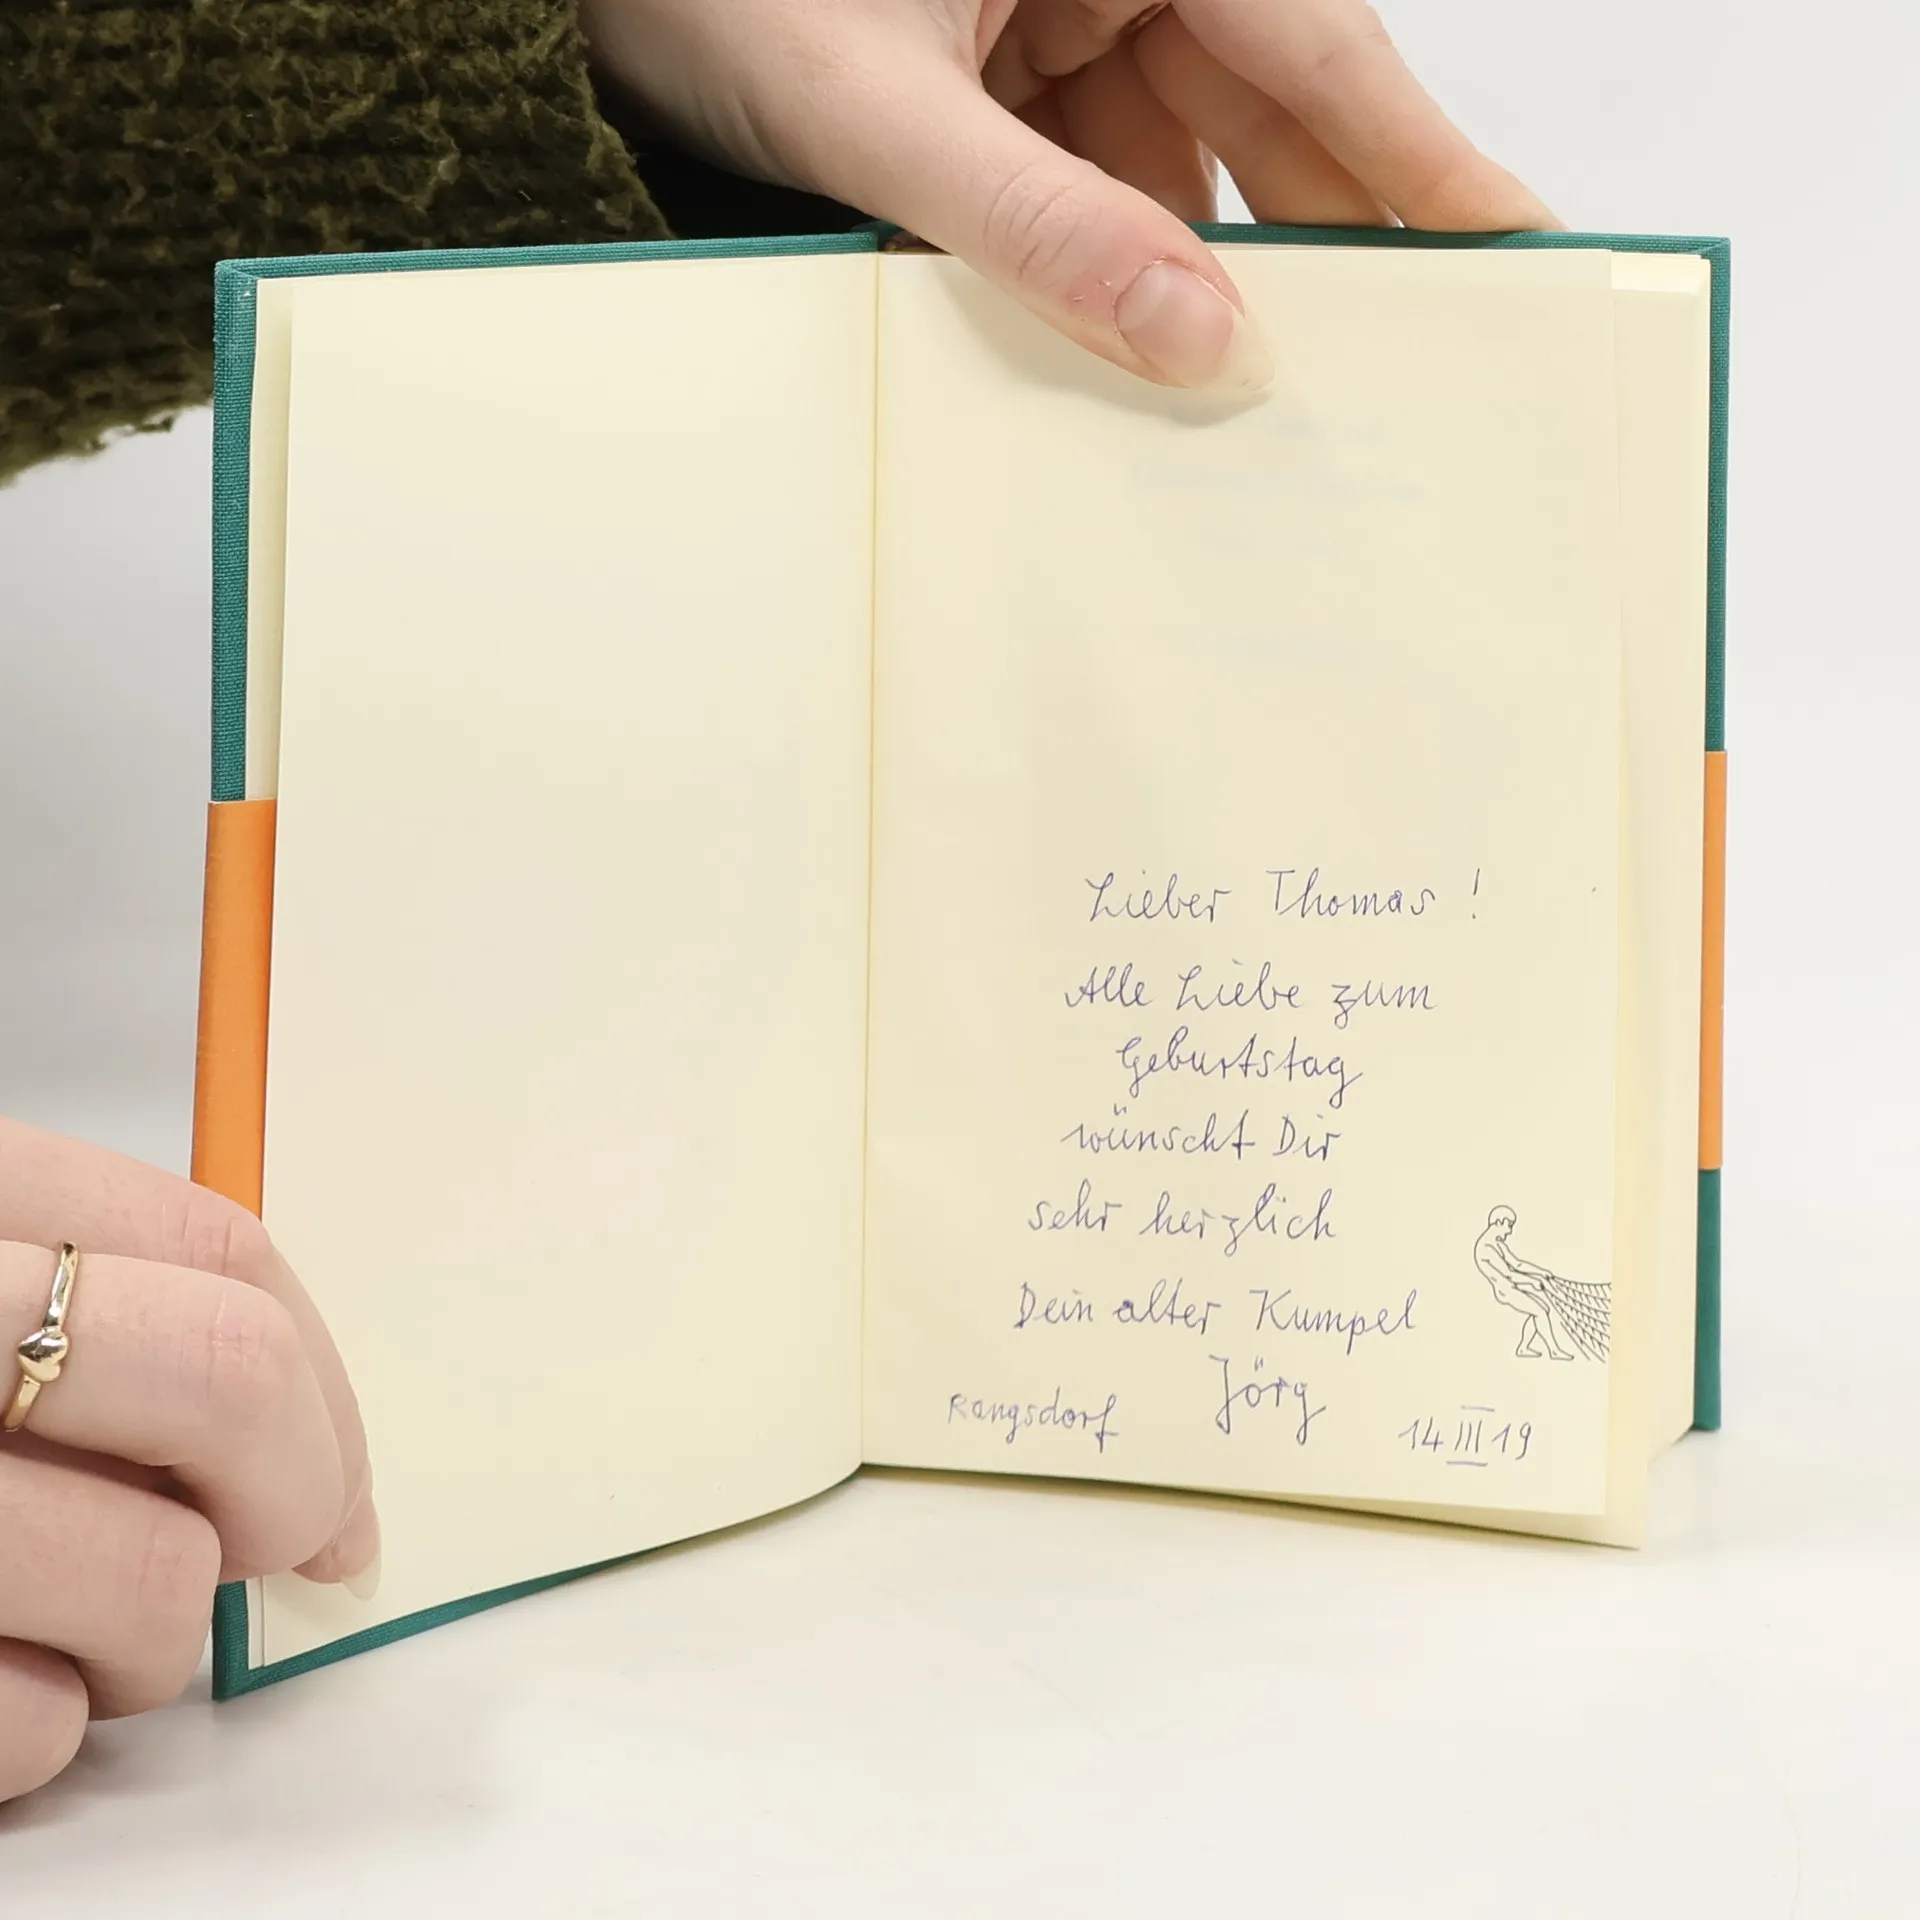 Lieber Thomas !
Alle Liebe zum
Geburtstag
wünscht Dir
sehr herzlich
Dein alter Kumpel
Jörg
Rangsdorf
14 III 19